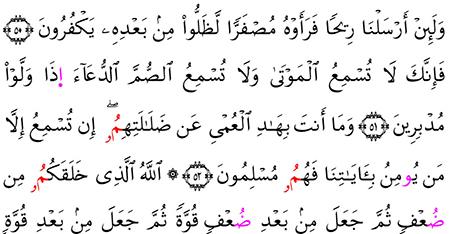 وَلَئِنْ أَرْسَلْنَا رِيحًا فَرَأَوْهُ مُصْفَرًّا لَّظَلُّوا۟ مِنۢ بَعْدِهِۦ يَكْفُرُونَ ٥٠
فَإِنَّكَ لَا تُسْمِعُ ٱلْمَوْتَىٰ وَلَا تُسْمِعُ ٱلصُّمَّ ٱلدُّعَآءَ اِ۪ذَا وَلَّوْا۟
مُدْبِرِينَ ٥١ وَمَآ أَنتَ بِهَٰدِ ٱلْعُمْىِ عَن ضَلَٰلَتِهِمُۥٓۖ إِن تُسْمِعُ إِلَّا
مَن يُومِنُ بِـَٔايَٰتِنَا فَهُمُۥ مُسْلِمُونَ ٥٢ ۞ ٱللَّهُ ٱلَّذِى خَلَقَكُمُۥ مِن
ضُعْفٍ ثُمَّ جَعَلَ مِنۢ بَعْدِ ضُعْفٍ قُوَّةً ثُمَّ جَعَلَ مِنۢ بَعْدِ قُوَّةٍ